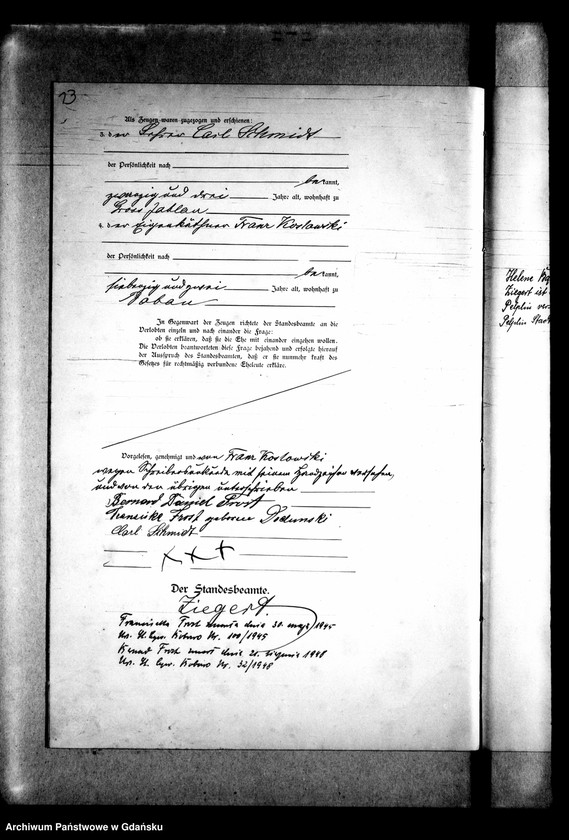 23
Als Zeugen waren zugezogen und erschienen:
3. der Lehrer Carl Schmidt
der Persönlichkeit nach
bekannt,
zwanzig und drei Jahre alt, wohnhaft zu
Gross Jablau
4. der Eigenkäthner Franz Koslowski
der Persönlichkeit nach
bekannt,
siebenzig und zwei Jahre alt, wohnhaft zu
In Gegenwart der Zeugen richtete der Standesbeamte an die
Verlobten einzeln und nach einander die Frage:
ob sie erklären, daß sie die Ehe mit einander eingehen wollen.
Die Verlobten beantworteten diese Frage bejahend und erfolgte hierauf
der Ausspruch des Standesbeamten, daß er sie nunmehr kraft des
Gesetzes für rechtmäßig verbundene Eheleute erkläre.
Vorgelesen, genehmigt und von Franz Koslowski
wegen Schreibensunkunde mit seinem Handzeichen versehen,
und von den übrigen unterschrieben
Bernard David Frost
Franziska Frost geborene
Carl Schmidt
+++
Der Standesbeamte.
Ziegert
Franciszka Frost zmarła dnia 31. maja 1945
Urz. St. Cyw. Nr. 100/1945
Frost zmarł dnia 21. 1948
Urz. St. Cyw. Nr. 32/1948
Helene
Ziegert ist
Pelplin
Pelplin
Archiwum Państwowe w Gdańsku